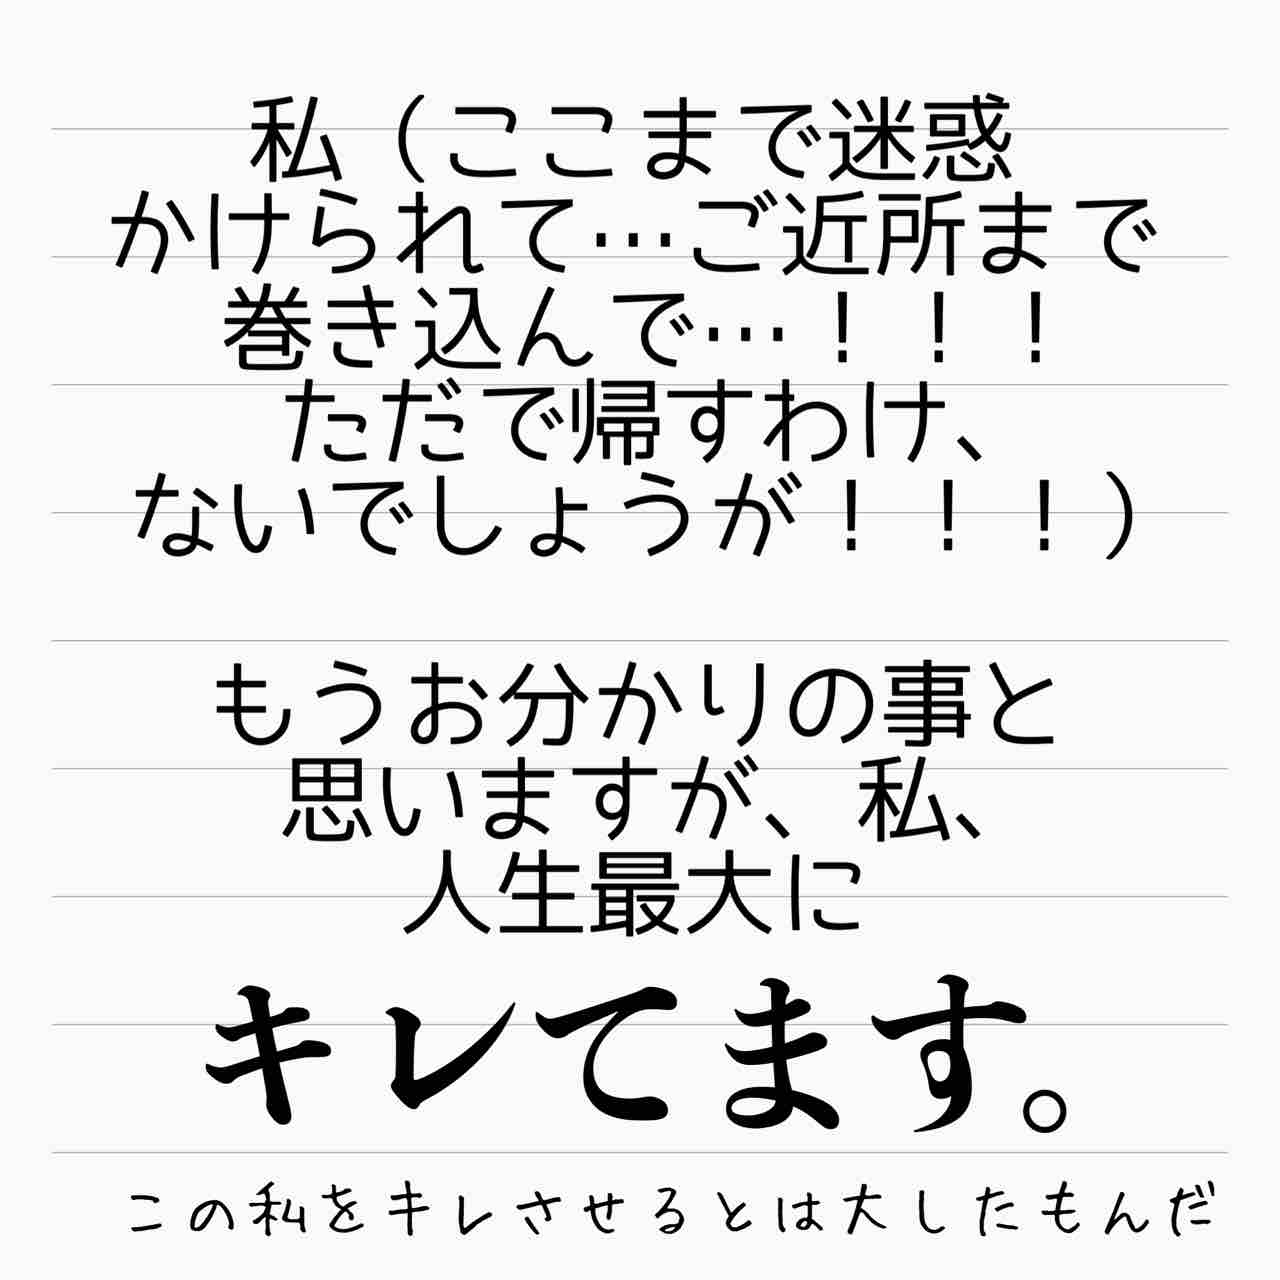 私（ここまで迷惑
かけられて…ご近所まで
巻き込んで…！！！
ただで帰すわけ、
ないでしょうが！！！）
もうお分かりの事と
思いますが、私、
人生最大に
キレてます。
この私をキレさせるとは大したもんだ